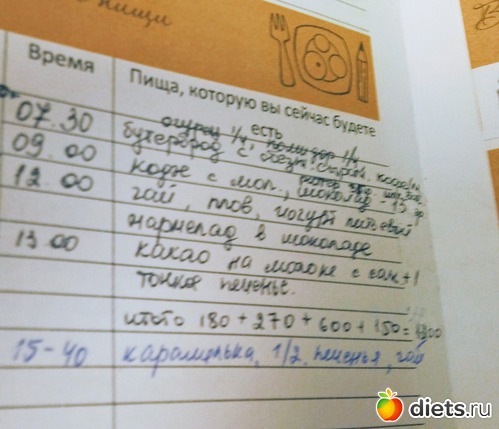 пищи
Время
Пища, которую вы сейчас будете
есть
07.30
огурец 1/2, помидор 1/2
бутерброд с обезж. сыром,
09.00
кофе с мол., шоколад - 15 гр
12.00
чай, плов, йогурт питьевой
мармелад в шоколаде
13.00
какао на молоке с сах + 1
тонкое печенье.
итого 180 + 270 + 600 + 150 = 1200
15-40
карамелька, 1/2 печенья, чай
diets.ru